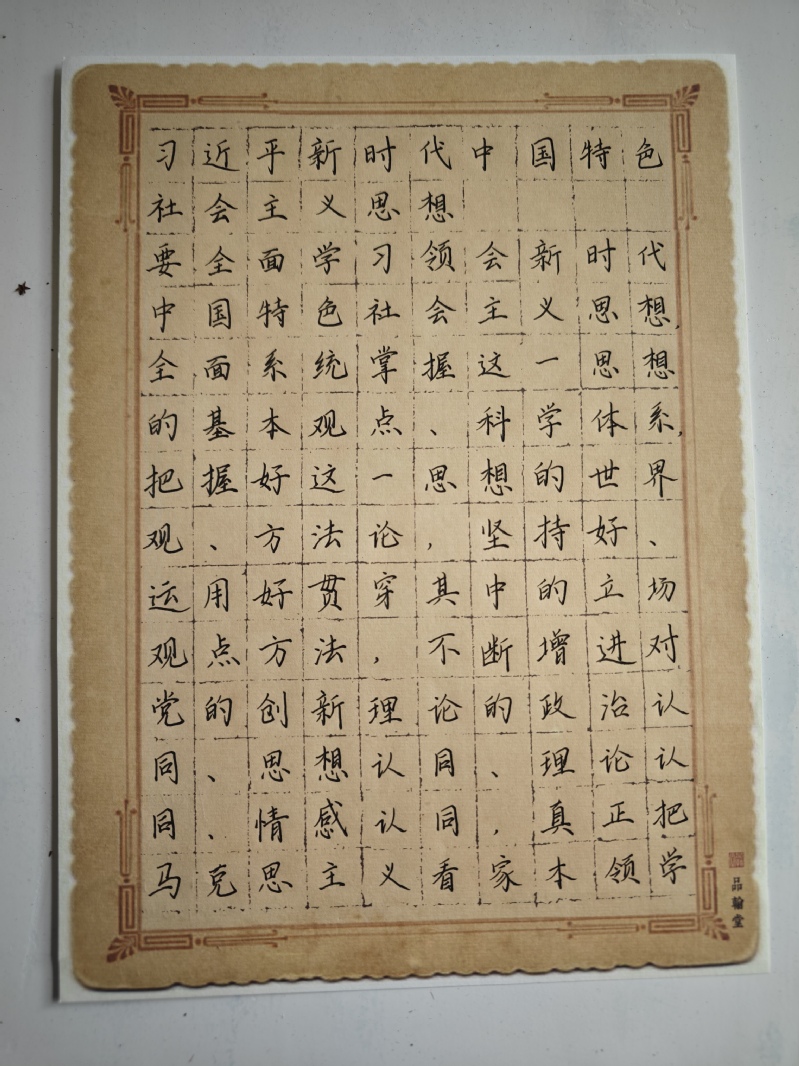 习近平新时代中国特色
社会主义思想
要全面学习领会新时代
中国特色社会主义思想,
全面系统掌握这一思想
的基本观点、科学体系,
把握好这一思想的世界
观、方法论,坚持好、
运用好贯穿其中的立场
观点方法,不断增进对
党的创新理论的政治认
同、思想认同、理论认
同、情感认同,真正把
马克思主义看家本领学
品翰堂